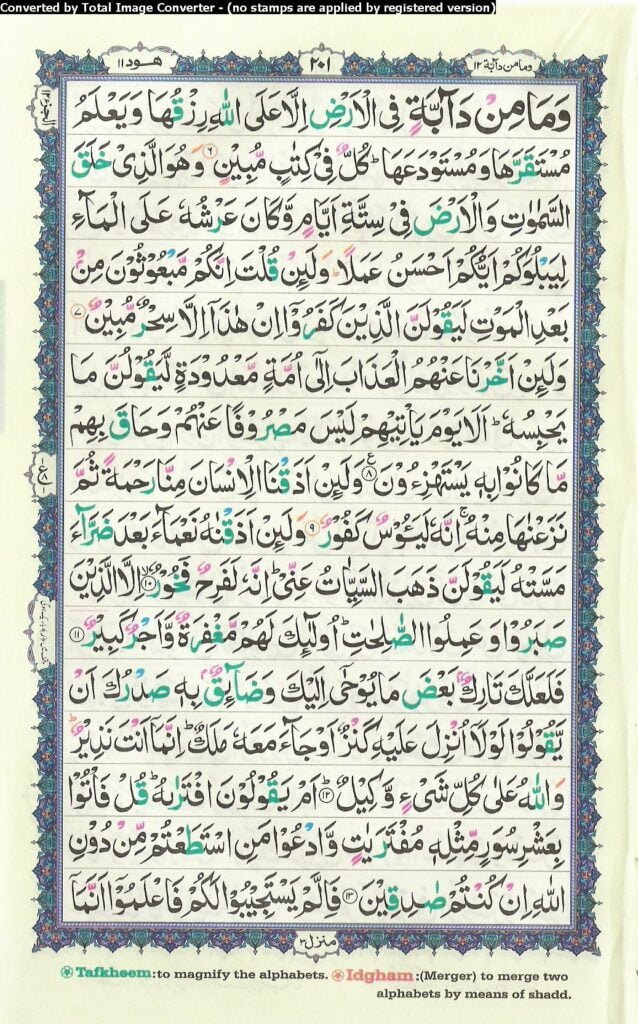 Converted by Total Image Converter - (no stamps are applied by registered version)
وما من دآبة ١٢
٢٠١
هود ١١
وَمَا مِنْ دَآبَّةٍ فِي الْاَرْضِ اِلَّا عَلَى اللّٰهِ رِزْقُهَا وَيَعْلَمُ
مُسْتَقَرَّهَا وَمُسْتَوْدَعَهَا ؕ كُلٌّ فِيْ كِتٰبٍ مُّبِيْنٍ ۶ وَهُوَ الَّذِيْ خَلَقَ
السَّمٰوٰتِ وَالْاَرْضَ فِيْ سِتَّةِ اَيَّامٍ وَّكَانَ عَرْشُهٗ عَلَى الْمَآءِ
لِيَبْلُوَكُمْ اَيُّكُمْ اَحْسَنُ عَمَلًا ؕ وَلَئِنْ قُلْتَ اِنَّكُمْ مَّبْعُوْثُوْنَ مِنْۢ
بَعْدِ الْمَوْتِ لَيَقُوْلَنَّ الَّذِيْنَ كَفَرُوْٓا اِنْ هٰذَآ اِلَّا سِحْرٌ مُّبِيْنٌ ۷
وَلَئِنْ اَخَّرْنَا عَنْهُمُ الْعَذَابَ اِلٰٓى اُمَّةٍ مَّعْدُوْدَةٍ لَّيَقُوْلُنَّ مَا
يَحْبِسُهٗ ؕ اَلَا يَوْمَ يَاْتِيْهِمْ لَيْسَ مَصْرُوْفًا عَنْهُمْ وَحَاقَ بِهِمْ
مَّا كَانُوْا بِهٖ يَسْتَهْزِءُوْنَ ۸ وَلَئِنْ اَذَقْنَا الْاِنْسَانَ مِنَّا رَحْمَةً ثُمَّ
نَزَعْنٰهَا مِنْهُ ۚ اِنَّهٗ لَيَـُٔوْسٌ كَفُوْرٌ ۹ وَلَئِنْ اَذَقْنٰهُ نَعْمَآءَ بَعْدَ ضَرَّآءَ
مَسَّتْهُ لَيَقُوْلَنَّ ذَهَبَ السَّيِّاٰتُ عَنِّيْ ؕ اِنَّهٗ لَفَرِحٌ فَخُوْرٌ ۱۰ اِلَّا الَّذِيْنَ
صَبَرُوْا وَعَمِلُوا الصّٰلِحٰتِ ؕ اُولٰٓئِكَ لَهُمْ مَّغْفِرَةٌ وَّاَجْرٌ كَبِيْرٌ ۱۱
فَلَعَلَّكَ تَارِكٌۢ بَعْضَ مَا يُوْحٰٓى اِلَيْكَ وَضَآئِقٌۢ بِهٖ صَدْرُكَ اَنْ
يَّقُوْلُوْا لَوْلَآ اُنْزِلَ عَلَيْهِ كَنْزٌ اَوْ جَآءَ مَعَهٗ مَلَكٌ ؕ اِنَّمَآ اَنْتَ نَذِيْرٌ ؕ
وَاللّٰهُ عَلٰى كُلِّ شَيْءٍ وَّكِيْلٌ ۱۲ اَمْ يَقُوْلُوْنَ افْتَرٰىهُ ؕ قُلْ فَاْتُوْا
بِعَشْرِ سُوَرٍ مِّثْلِهٖ مُفْتَرَيٰتٍ وَّادْعُوْا مَنِ اسْتَطَعْتُمْ مِّنْ دُوْنِ
اللّٰهِ اِنْ كُنْتُمْ صٰدِقِيْنَ ۱۳ فَاِلَّمْ يَسْتَجِيْبُوْا لَكُمْ فَاعْلَمُوْٓا اَنَّمَآ
منزل ٣
Tafkheem:to magnify the alphabets. Idgham:(Merger) to merge two
alphabets by means of shadd.